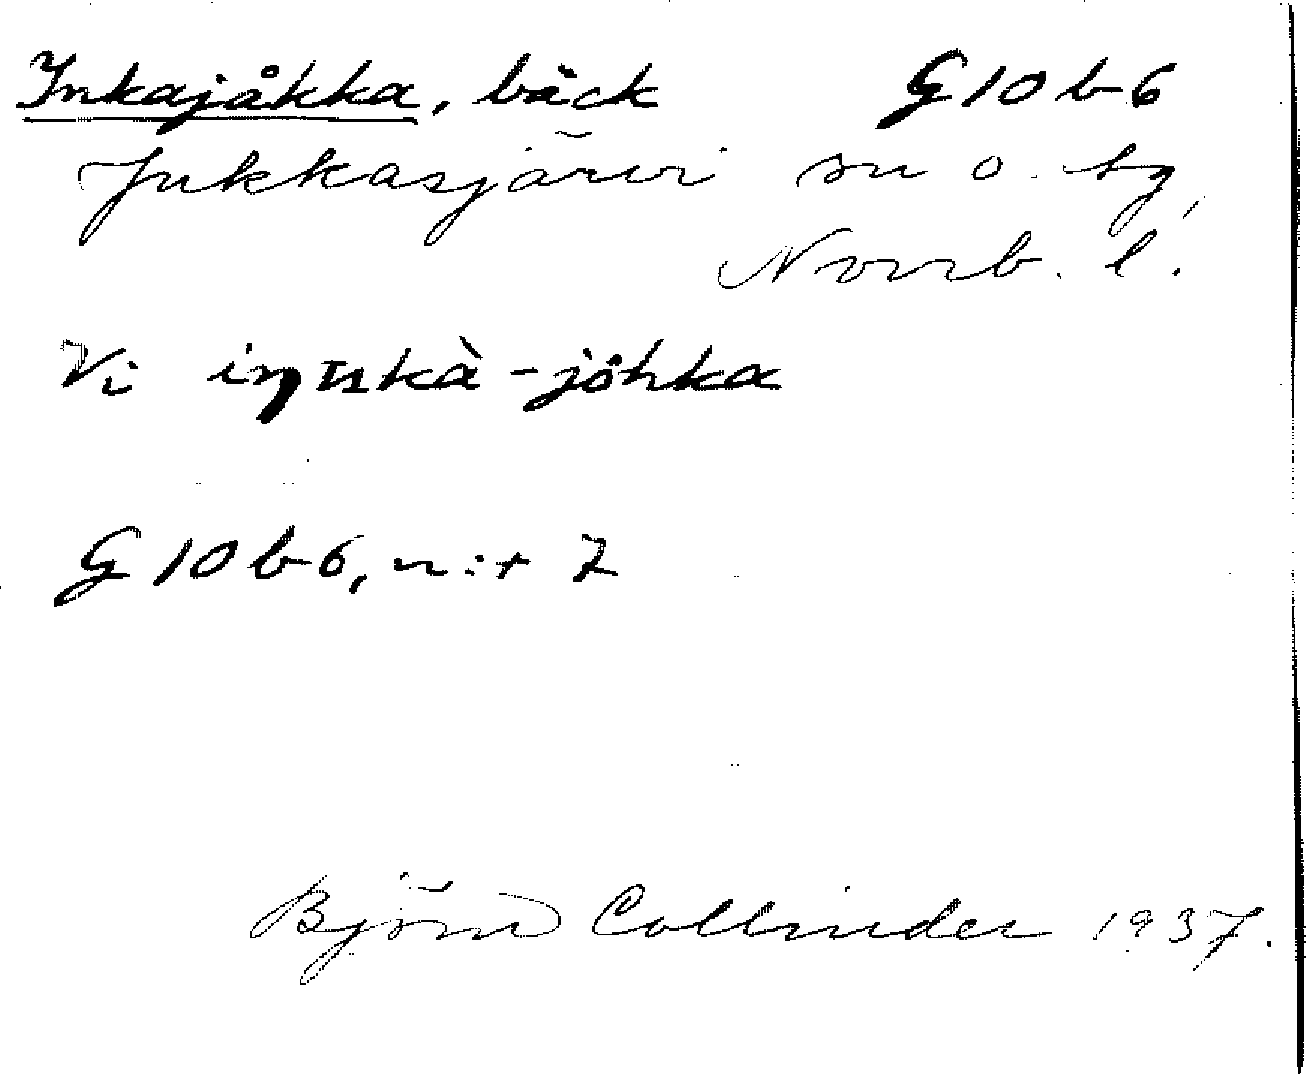 Inkajåkka, bäck G10b6
Jukkasjärvi sn o. tg,
Norrb. l.
Vi -jåhka
G10b6, n:r 7
Björn Collinder 1937.